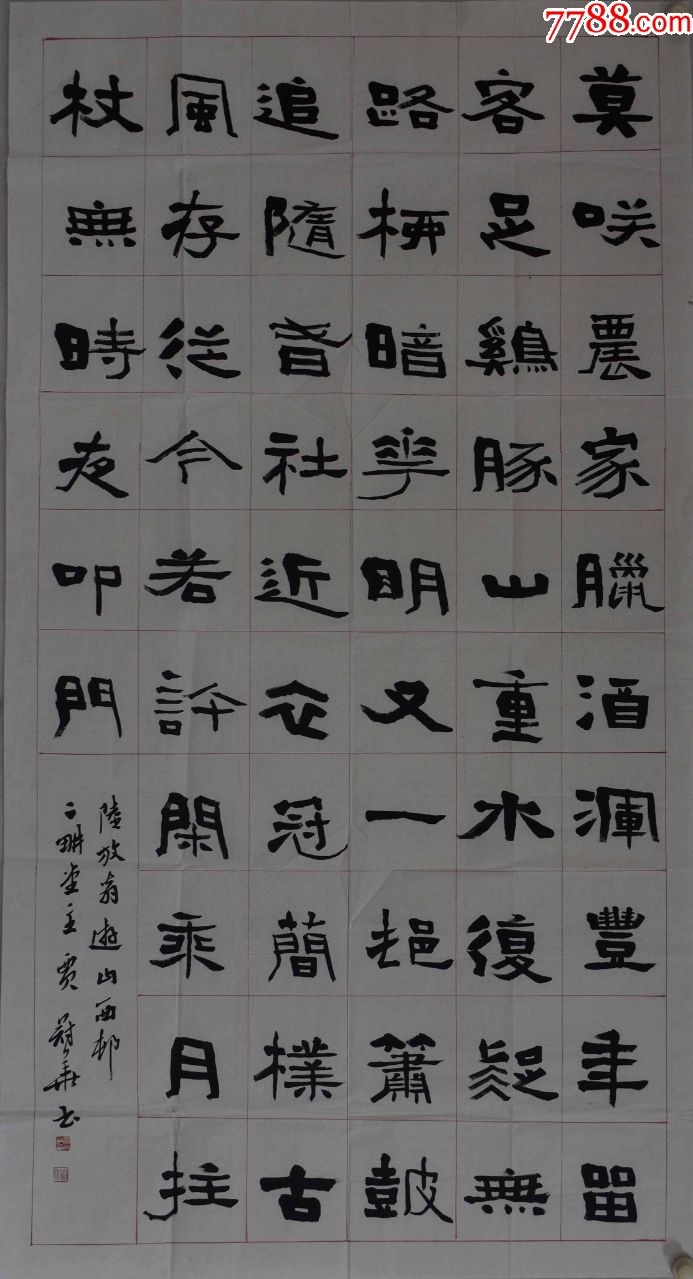 7788.com
莫咲農家臘酒渾豐年留
客足鷄豚山重水復疑無
路柳暗花明又一邨簫鼓
追隨春社近衣冠簡樸古
風存從今若許閑乘月拄
杖無時夜叩門
陸放翁遊山西邨
二畊堂主賈華书